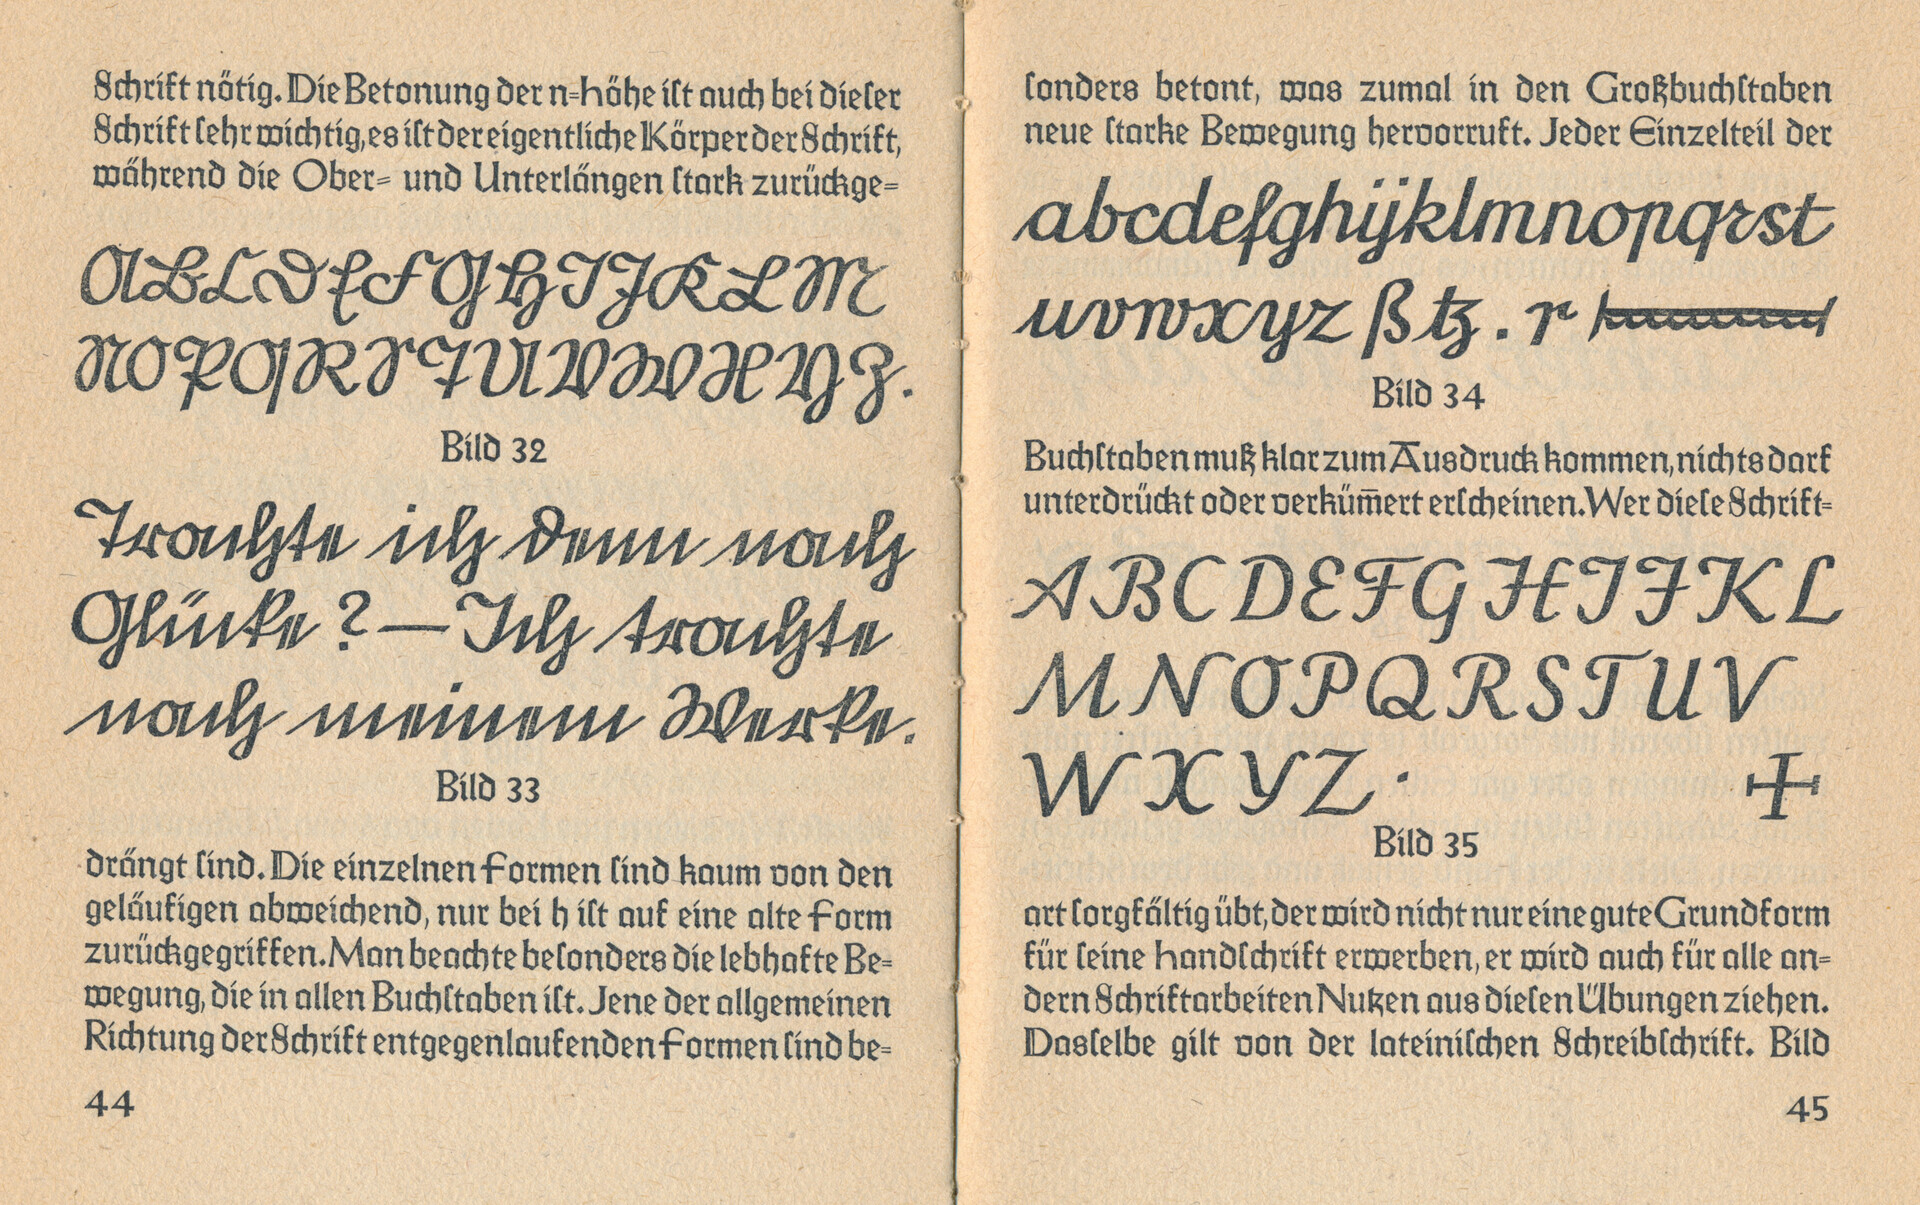 Schrift nötig. Die Betonung der n=höhe iſt auch bei dieſer
Schrift ſehr wichtig, es iſt der eigentliche Körper der Schrift,
während die Ober= und Unterlängen ſtark zurückge=
A B C D E F G H I J K L M
N O P Q R S T U V W X Y Z.
Bild 32
Trachte ich denn nach
Glücke? — Ich trachte
nach meinem Werke.
Bild 33
drängt ſind. Die einzelnen Formen ſind kaum von den
geläufigen abweichend, nur bei h iſt auf eine alte Form
zurückgegriffen. Man beachte beſonders die lebhafte Be=
wegung, die in allen Buchſtaben iſt. Jene der allgemeinen
Richtung der Schrift entgegenlaufenden Formen ſind be=
44
ſonders betont, was zumal in den Großbuchſtaben
neue ſtarke Bewegung hervorruft. Jeder Einzelteil der
abcdefghijklmnopqrst
uvwxyz ß tz . r
Bild 34
Buchſtaben muß klar zum Ausdruck kommen, nichts darf
unterdrückt oder verküm̅ert erſcheinen. Wer dieſe Schrift=
A B C D E F G H I J K L
M N O P Q R S T U V
W X Y Z .
Bild 35
art ſorgfältig übt, der wird nicht nur eine gute Grundform
für ſeine handſchrift erwerben, er wird auch für alle an=
dern Schriftarbeiten Nutzen aus dieſen Übungen ziehen.
Dasſelbe gilt von der lateiniſchen Schreibſchrift. Bild
45